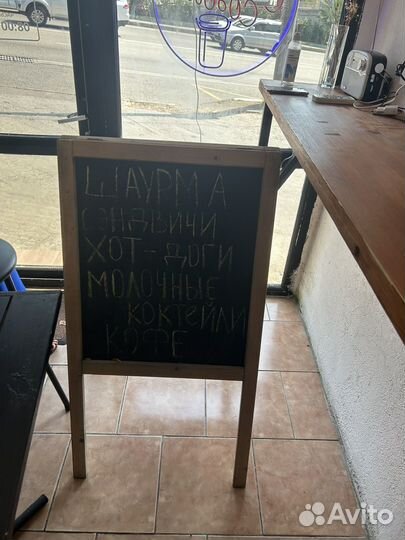 ШАУРМА
СЭНДВИЧИ
ХОТ-ДОГИ
МОЛОЧНЫЕ
КОКТЕЙЛИ
КОФЕ
Avito